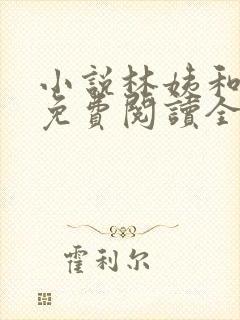 小說林姨和
免費閱讀全
霍利尔